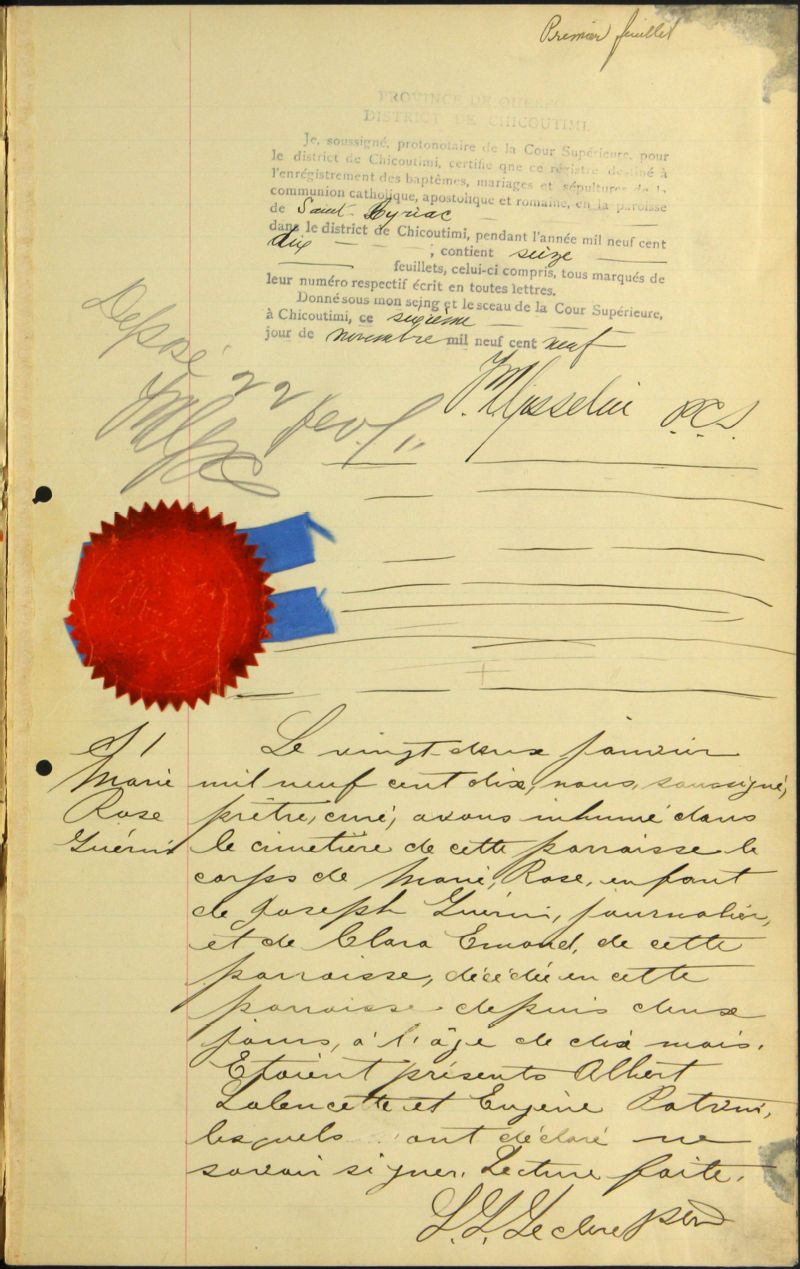 Premier feuillet
PROVINCE DE QUEBEC
DISTRICT DE CHICOUTIMI
Je, soussigné, protonotaire de la Cour Supérieure, pour
le district de Chicoutimi, certifie que ce régistre destiné à
l'enrégistrement des baptêmes, mariages et sépultures de la
communion catholique, apostolique et romaine, en la paroisse
de Saint-Cyriac
dans le district de Chicoutimi, pendant l'année mil neuf cent
dix ; contient seize
feuillets, celui-ci compris, tous marqués de
leur numéro respectif écrit en toutes lettres.
Donné sous mon seing et le sceau de la Cour Supérieure,
à Chicoutimi, ce seizième
jour de novembre mil neuf cent neuf
P.C.S.
Déposé
22 fev.
S 1
Marie
Rose
Guérin
Le vingt-deux janvier
mil neuf cent dix, nous, soussigné,
prêtre, curé, avons inhumé dans
le cimetière de cette parroisse le
corps de Marie, Rose, enfant
de Joseph Guérin, journalier,
et de Clara Emond, de cette
parroisse, décédée en cette
parroisse depuis deux
jours, à l'âge de dix mois.
Etaient présents Albert
Lalancette et Eugène Potvin,
lesquels ont déclaré ne
savoir signer. Lecture faite.
Leclerc ptre